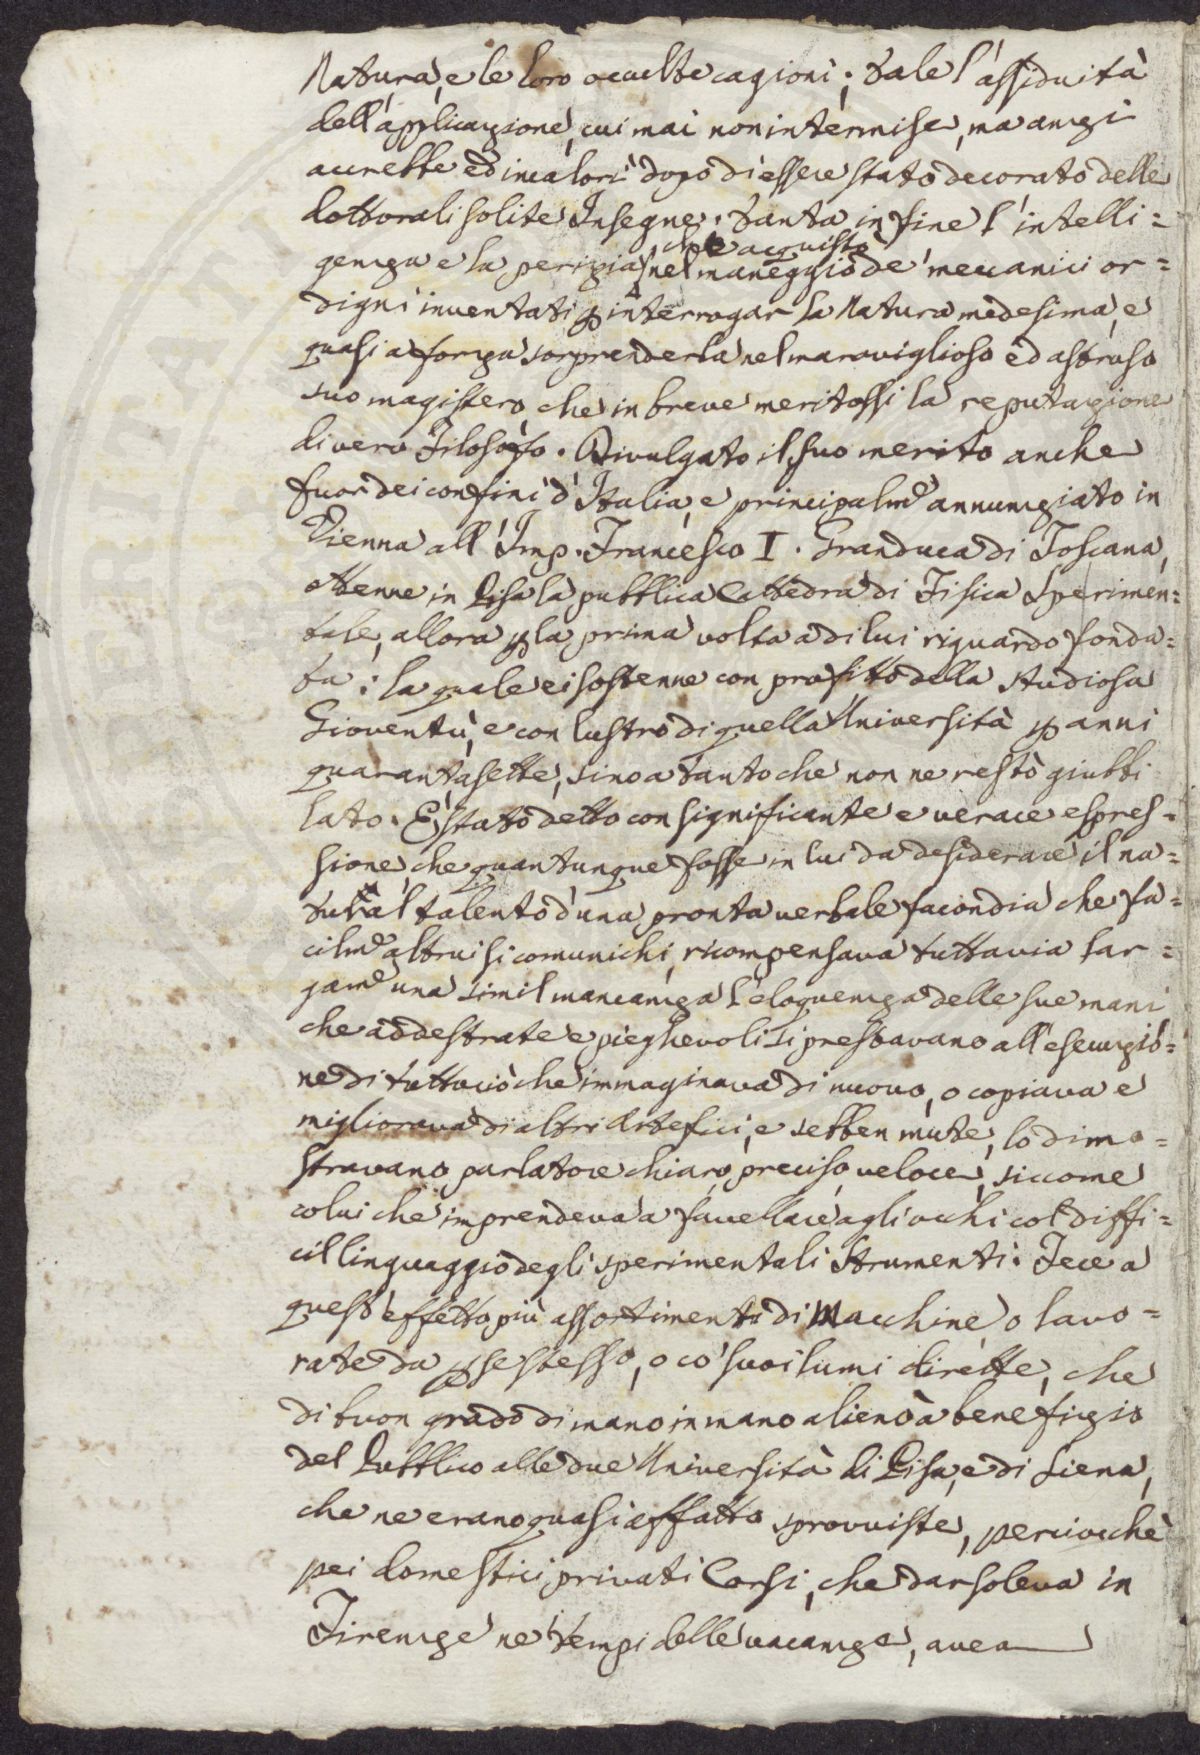 Natura, e le loro occulte cagioni; Tale l'assiduità
dell'applicazione, cui mai non intermise, ma anzi
accrebbe ed incalorì dopo di essere stato decorato delle
dottorali solite Insegne. Tanta in fine l'intelli=
genza e la perizia, che acquistò nel maneggio de' meccanici or=
digni inventati p interrogar la Natura medesima, e
quasi a forza sorprenderla nel maraviglioso ed astruso
suo magistero, che in breve meritossi la reputazione
di vero Filosofo. Divulgato il suo merito anche
fuor dei confini d'Italia, e principalme annunziato in
Vienna all'Imp. Francesco I. Granduca di Toscana,
ottenne in Pisa la pubblica Cattedra di Fisica Sperimen=
tale, allora p la prima volta a di lui riguardo fonda=
ta; la quale ei sostenne con profitto della studiosa
Gioventù, e con lustro di quella Università p anni
quarantasette, sino a tanto che non ne restò giubbi
lato. È stato detto con significante e verace espres=
sione, che quantunque fosse in lui da desiderare il na=
tural talento d'una pronta verbale facondia che fa=
cilme altrui si comunichi, ricompensava tuttavia lar=
game una simil mancanza l'eloquenza delle sue mani
che addestrate e pieghevoli si prestavano all'esecuzio=
ne di tutto ciò che immaginava di nuovo, o copiava e
migliorava di altri Artefici, e sebben mute, lo dimo=
stravano parlatore chiaro, preciso, veloce, siccome
colui che imprendeva a favellare agli occhi col diffi=
cil linguaggio degli sperimentali Strumenti. Fece a
quest'effetto più assortimenti di Macchine, o lavo=
rate da p se stesso, o co' suoi lumi dirette, che
di buon grado di mano in mano alienò a benefizio
del Pubblico alle due Università di Pisa, e di Siena,
che ne erano quasi affatto sprovviste, perciocchè
pei domestici privati Corsi, che dar soleva in
Firenze ne' tempi delle vacanze, avea